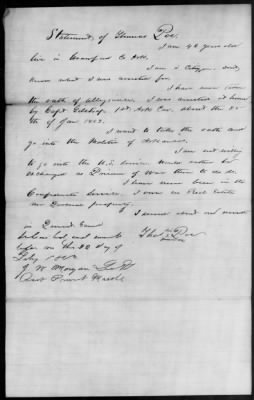 Statement of Thomas Doe.
I am 46 years old
live in Crawford Co Ark.
I am a Citizen and
know what I was arrested for.
I have never sworn
the oath of allegiance. I was arrested at home
by Capt Gilstrap 1st Ark Cav. about the 25
th of Jan 1863.
I want to take the oath and
go into the Militia of Arkansas.
I am not willing
to go into the U.S. service
exchanged as Prisoner of War than to do so
I have never been in the
Confederate Service. I own no Real Estate
nor personal property.
I cannot read nor write
Subscribed and sworn to
before me this 22 day of
Feby 1863
J. W. Morgan Lt
Asst Provost Marshl
Thos his X mark Doe